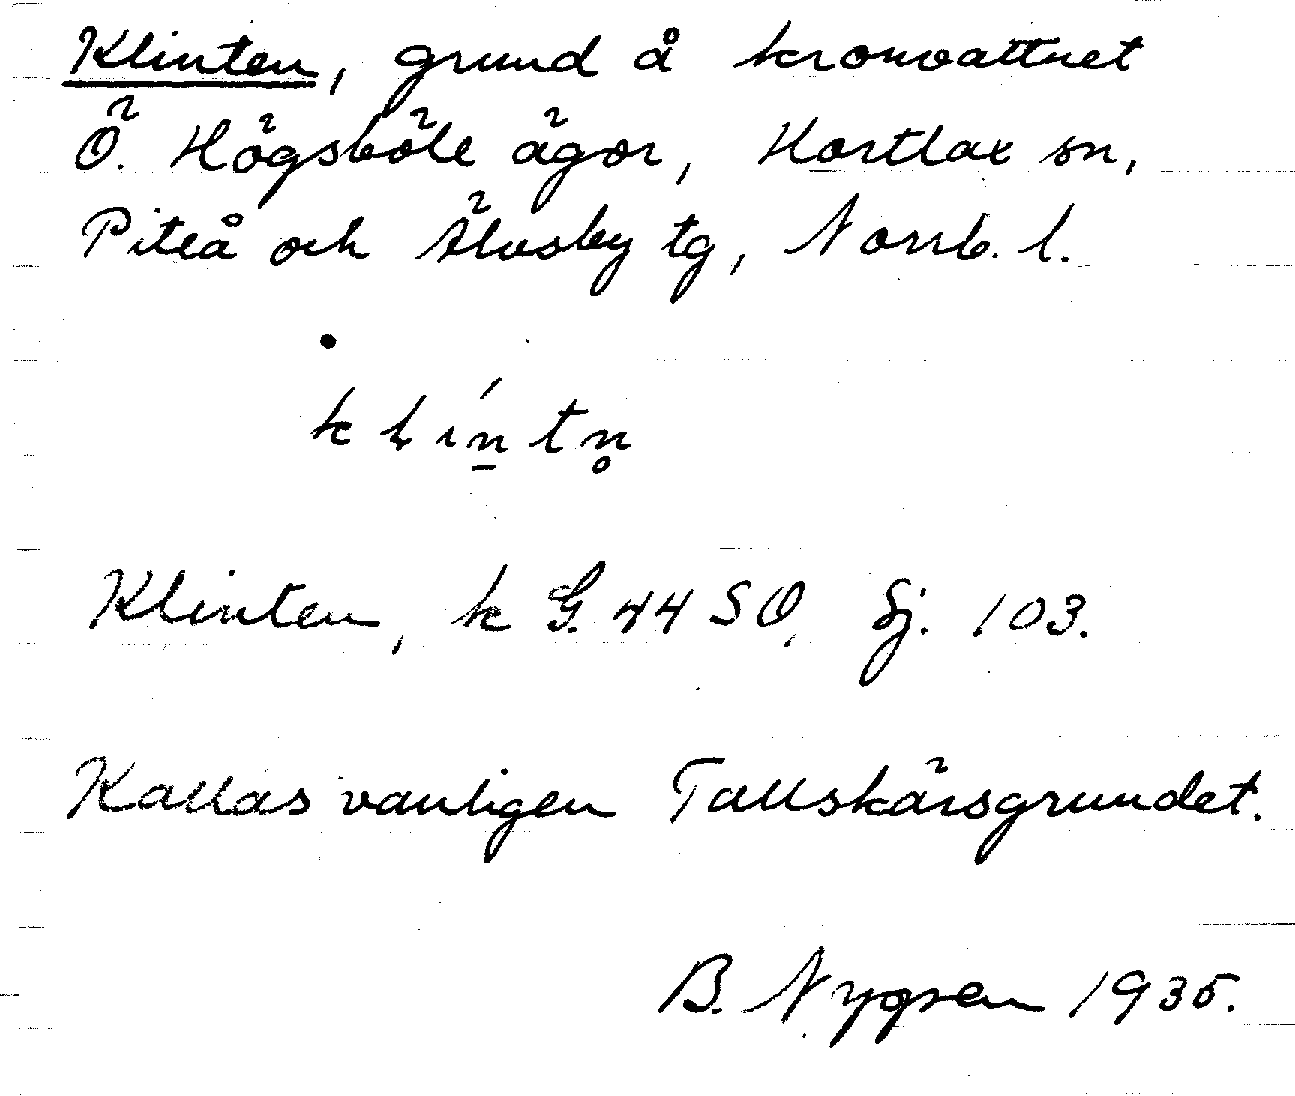 Klinten, grund å kronvattnet
Ö. Högsböle ägor, Hortlax sn,
Piteå och Älvsby tg, Norrb. l.
Klinten, k G. 44 SO, Sj. 103.
Kallas vanligen Tallskärsgrundet.
B. Nygren 1935.